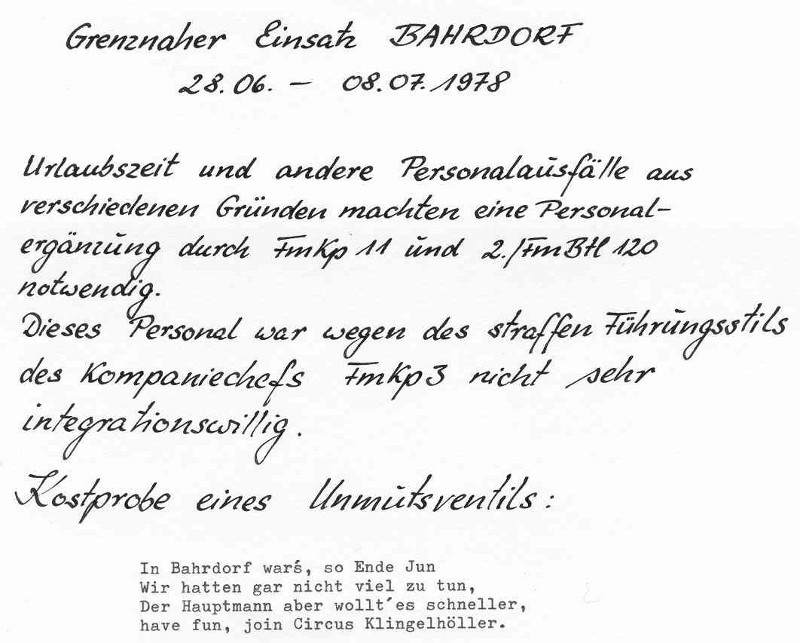 Grenznaher Einsatz BAHRDORF
28.06. – 08.07.1978
Urlaubszeit und andere Personalausfälle aus
verschiedenen Gründen machten eine Personal-
ergänzung durch FmKp 11 und 2./FmBtl 120
notwendig.
Dieses Personal war wegen des straffen Führungsstils
des Kompaniechefs FmKp3 nicht sehr
integrationswillig.
Kostprobe eines Unmutsventils:
In Bahrdorf warś, so Ende Jun
Wir hatten gar nicht viel zu tun,
Der Hauptmann aber wollt´es schneller,
have fun, join Circus Klingelhöller.